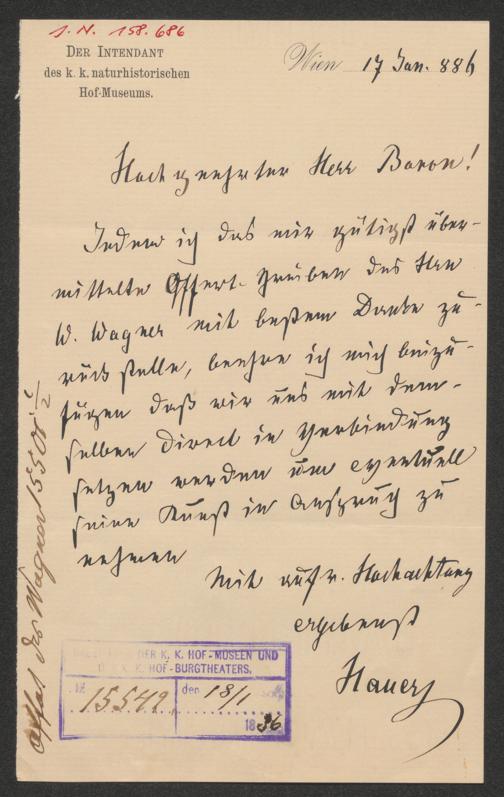 J. N. 158.686
DER INTENDANT
des k. k. naturhistorischen
Hof-Museums.
Wien 17 Jan. 886
Hochgeehrter Herr Baron!
Indem ich das mir gütigst über-
mittelte Offert-Schreiben des Herrn
W. Wagner mit bestem Danke zu-
rück stelle, beehre ich mich beizu-
fügen daß wir uns mit dem-
selben direct in Verbindung
setzen werden um eventuell
seine Kunst in Anspruch zu
nehmen
Mit aufr. Hochachtung
ergebenst
Hauer
des Wagner
DER K. K. HOF-MUSEEN UND
K. K. HOF-BURGTHEATERS.
15549. den 18/1
1886